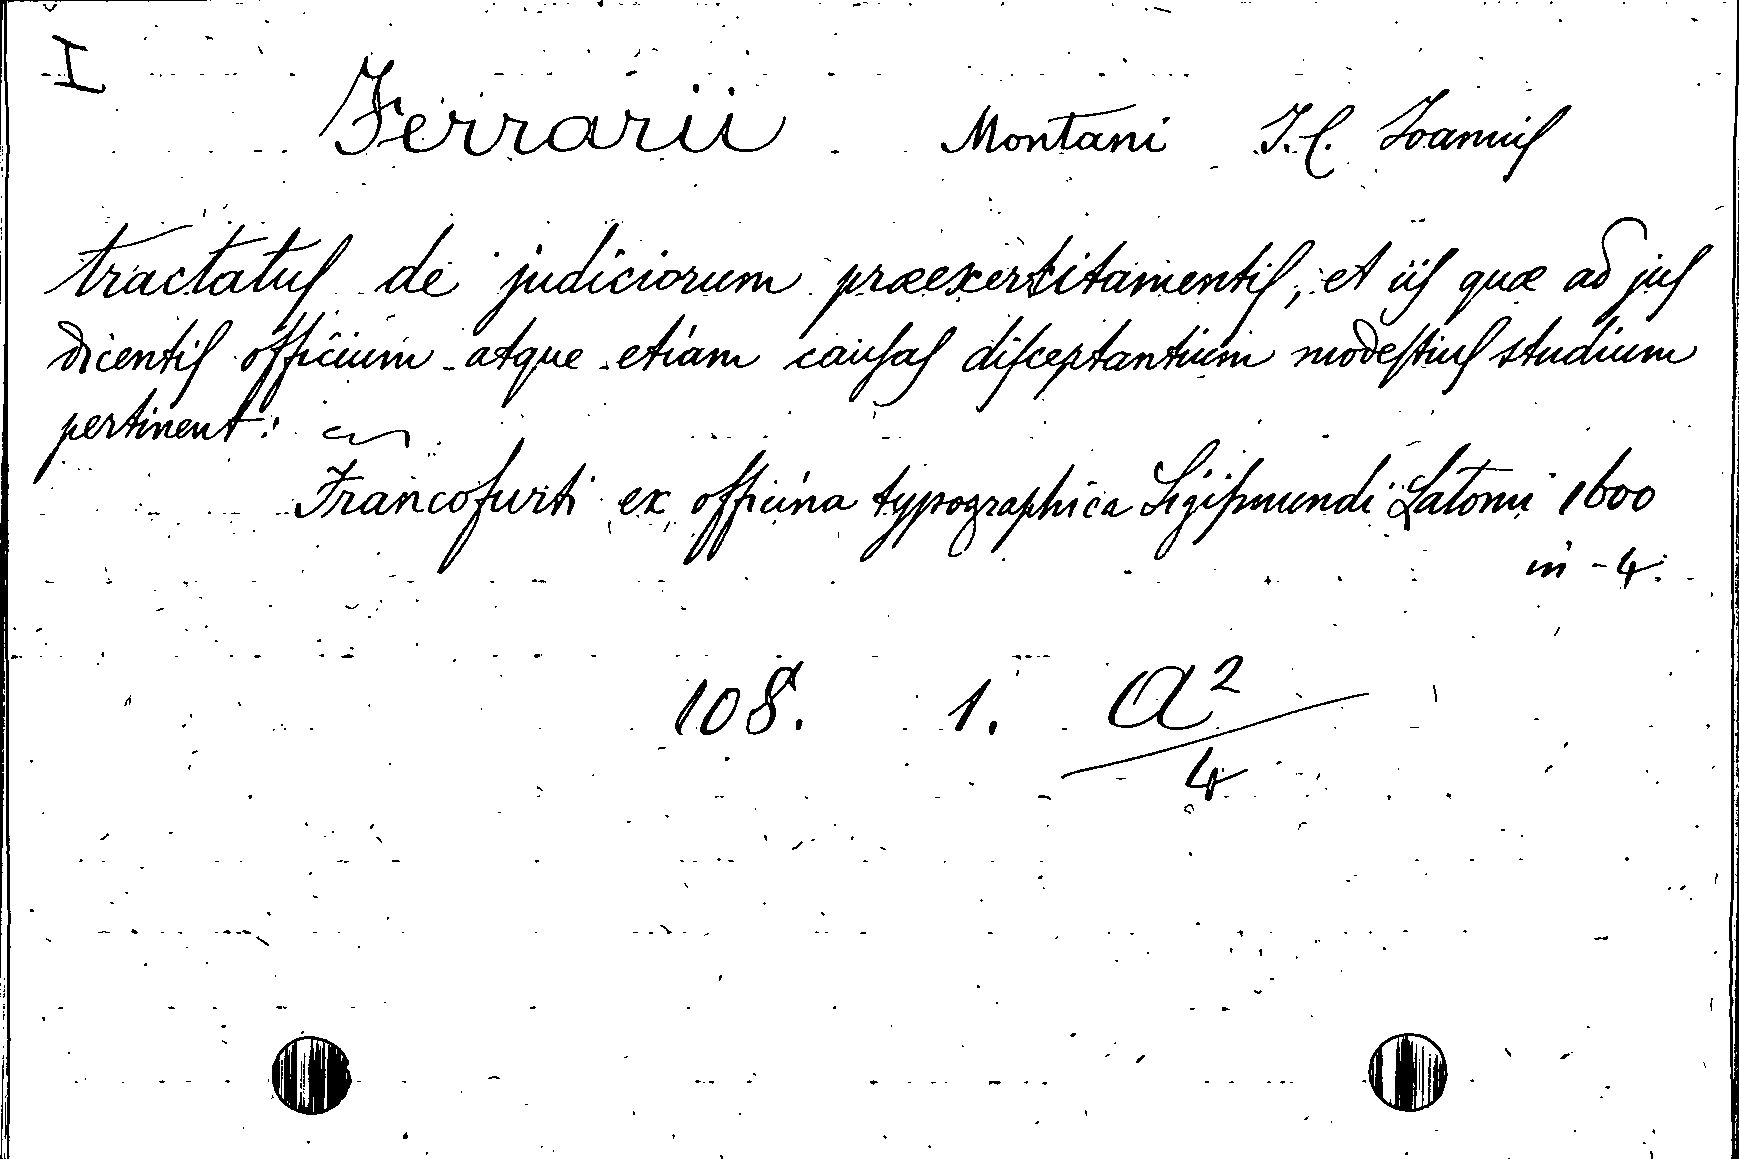 I
Ferrarii Montani J.C. Joannis
tractatus de judiciorum praeexercitamentis, et iis quæ ad jus
dicentis officium atque etiam causas disceptantium modestius studium
pertinent:
Francofurti ex officina typographica Sigismundi Latomi 1600
in-4.
108. 1. a²
4